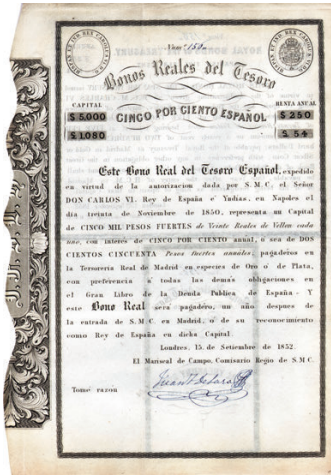 Num. 150
Bonos Reales del Tesoro
CAPITAL
RENTA ANUAL
CINCO POR CIENTO ESPAÑOL
$ 5.000
$ 250
$ 1.080
$ 54
Este Bono Real del Tesoro Español, expedido
en virtud de la autorizacion dada por S.M.C. el Señor
DON CARLOS VI. Rey de España é Yndias, en Napoles el
dia treinta de Noviembre de 1850, representa un Capital
de CINCO MIL PESOS FUERTES de Veinte Reales de Vellon cada
uno, con interes de CINCO POR CIENTO anual, ó sea de DOS
CIENTOS CINCUENTA Pesos fuertes annales, pagaderos en
la Tersoreria Real de Madrid en especies de Oro ó de Plata,
con preferencia á todas las demás obligaciones en
el Gran Libro de la Deuda Publica de España - Y
este Bono Real será pagadero, un año despues de
la entrada de S.M.C. en Madrid, ó de su reconocimiento
como Rey de España en dicha Capital.
Londres, 15, de Setiembre de 1852.
El Mariscal de Campo, Comisario Regio de S.M.C.
Tomé razon